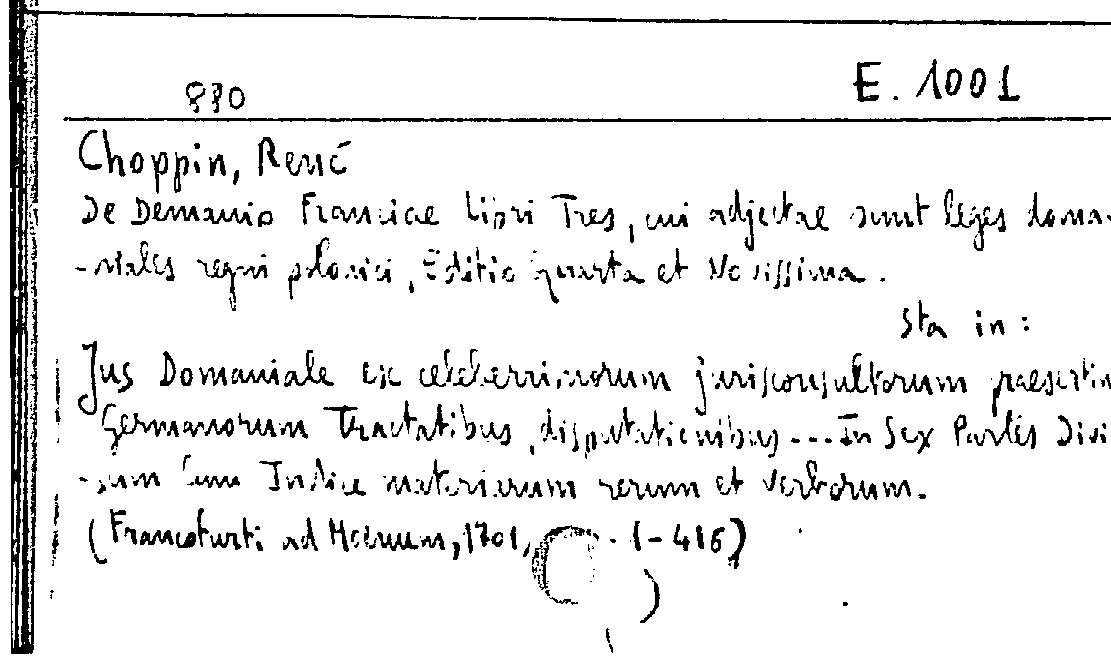 870 E. 1001
Choppin, René
De Demanio Franciae Libri Tres, cui adjectae sunt leges doma-
-niales regni polonici, Editio Quarta et Novissima.
Sta in:
Jus Domaniale ex celeberrimorum jurisconsultorum praesertim
Germanorum Tractatibus, disputationibus... In Sex Partes Divi
-sum Cum Indice materiarum rerum et Verborum.
(Francofurti ad Moenum, 1701, 1-416)